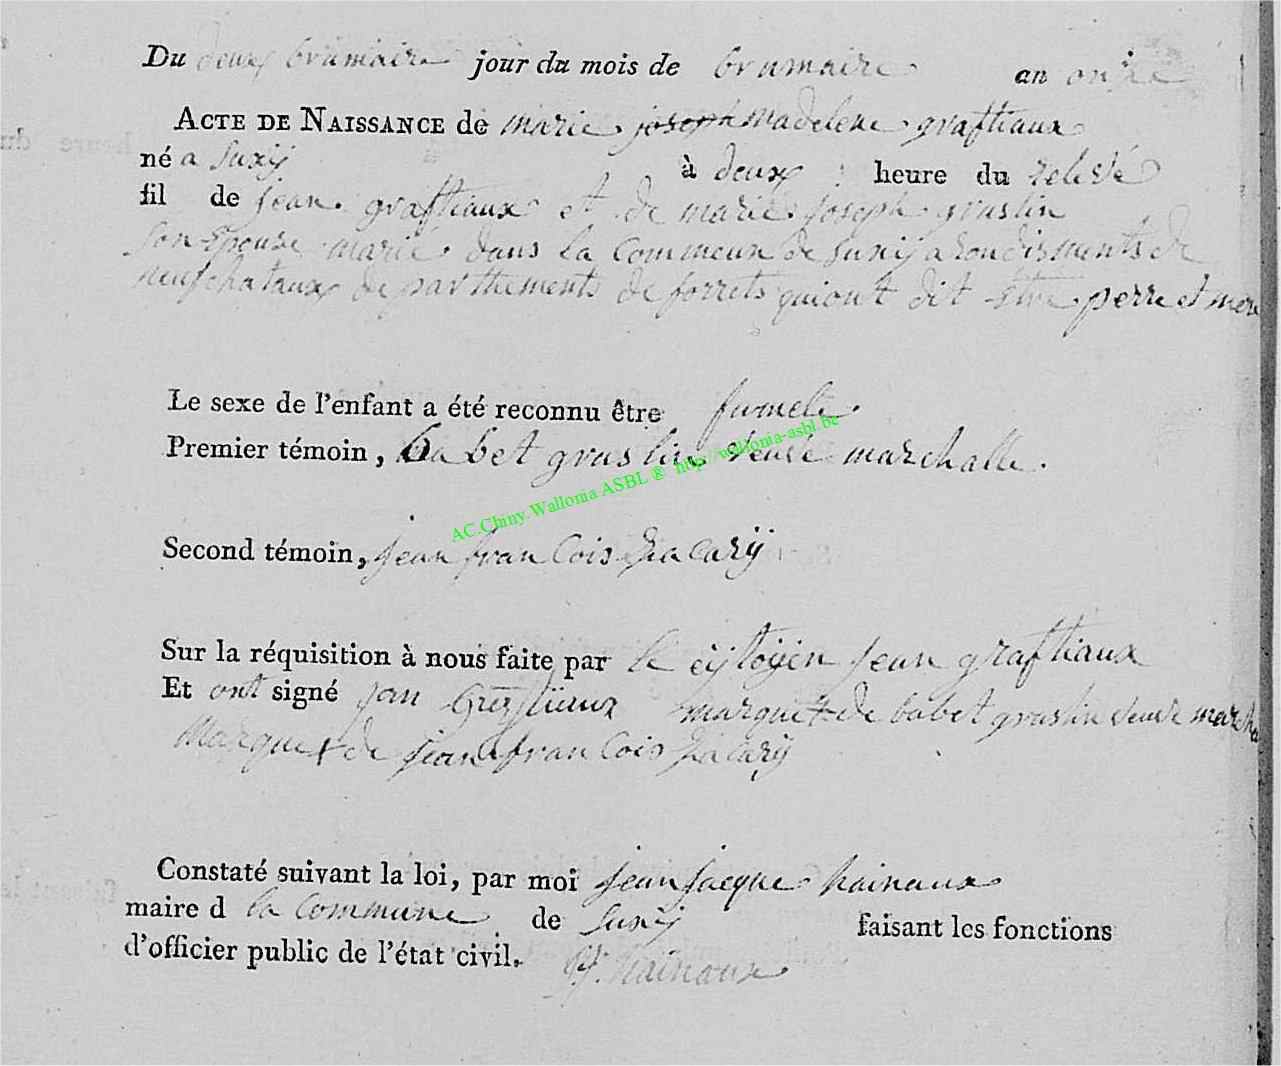 Du deux brumaire jour du mois de brumaire an onze
ACTE DE NAISSANCE de marie joseph madelene graftiaux
né a Suxÿ à deux heure du relevé
fil de jean graftiaux et de marie joseph graslin
son epouse marié dans la commeun de suxÿ arondisments de
neufchataux departhements de forrets qui ont dit être perre et mere
Le sexe de l'enfant a été reconnu être fumele
Premier témoin, babet graslin veuve marchalle.
AC.Chiny.Wallonia ASBL ® http://wallonia-asbl.be
Second témoin, jean francois Zacarÿ
Sur la réquisition à nous faite par le cÿtoÿen jean graftiaux
Et ont signé jan marque + de babet graslin veuve marcha
Marque + de jean francois Zacarÿ
Constaté suivant la loi, par moi jean jacque hainaux
maire d la commune de Suxÿ faisant les fonctions
d'officier public de l'état civil. hainaux